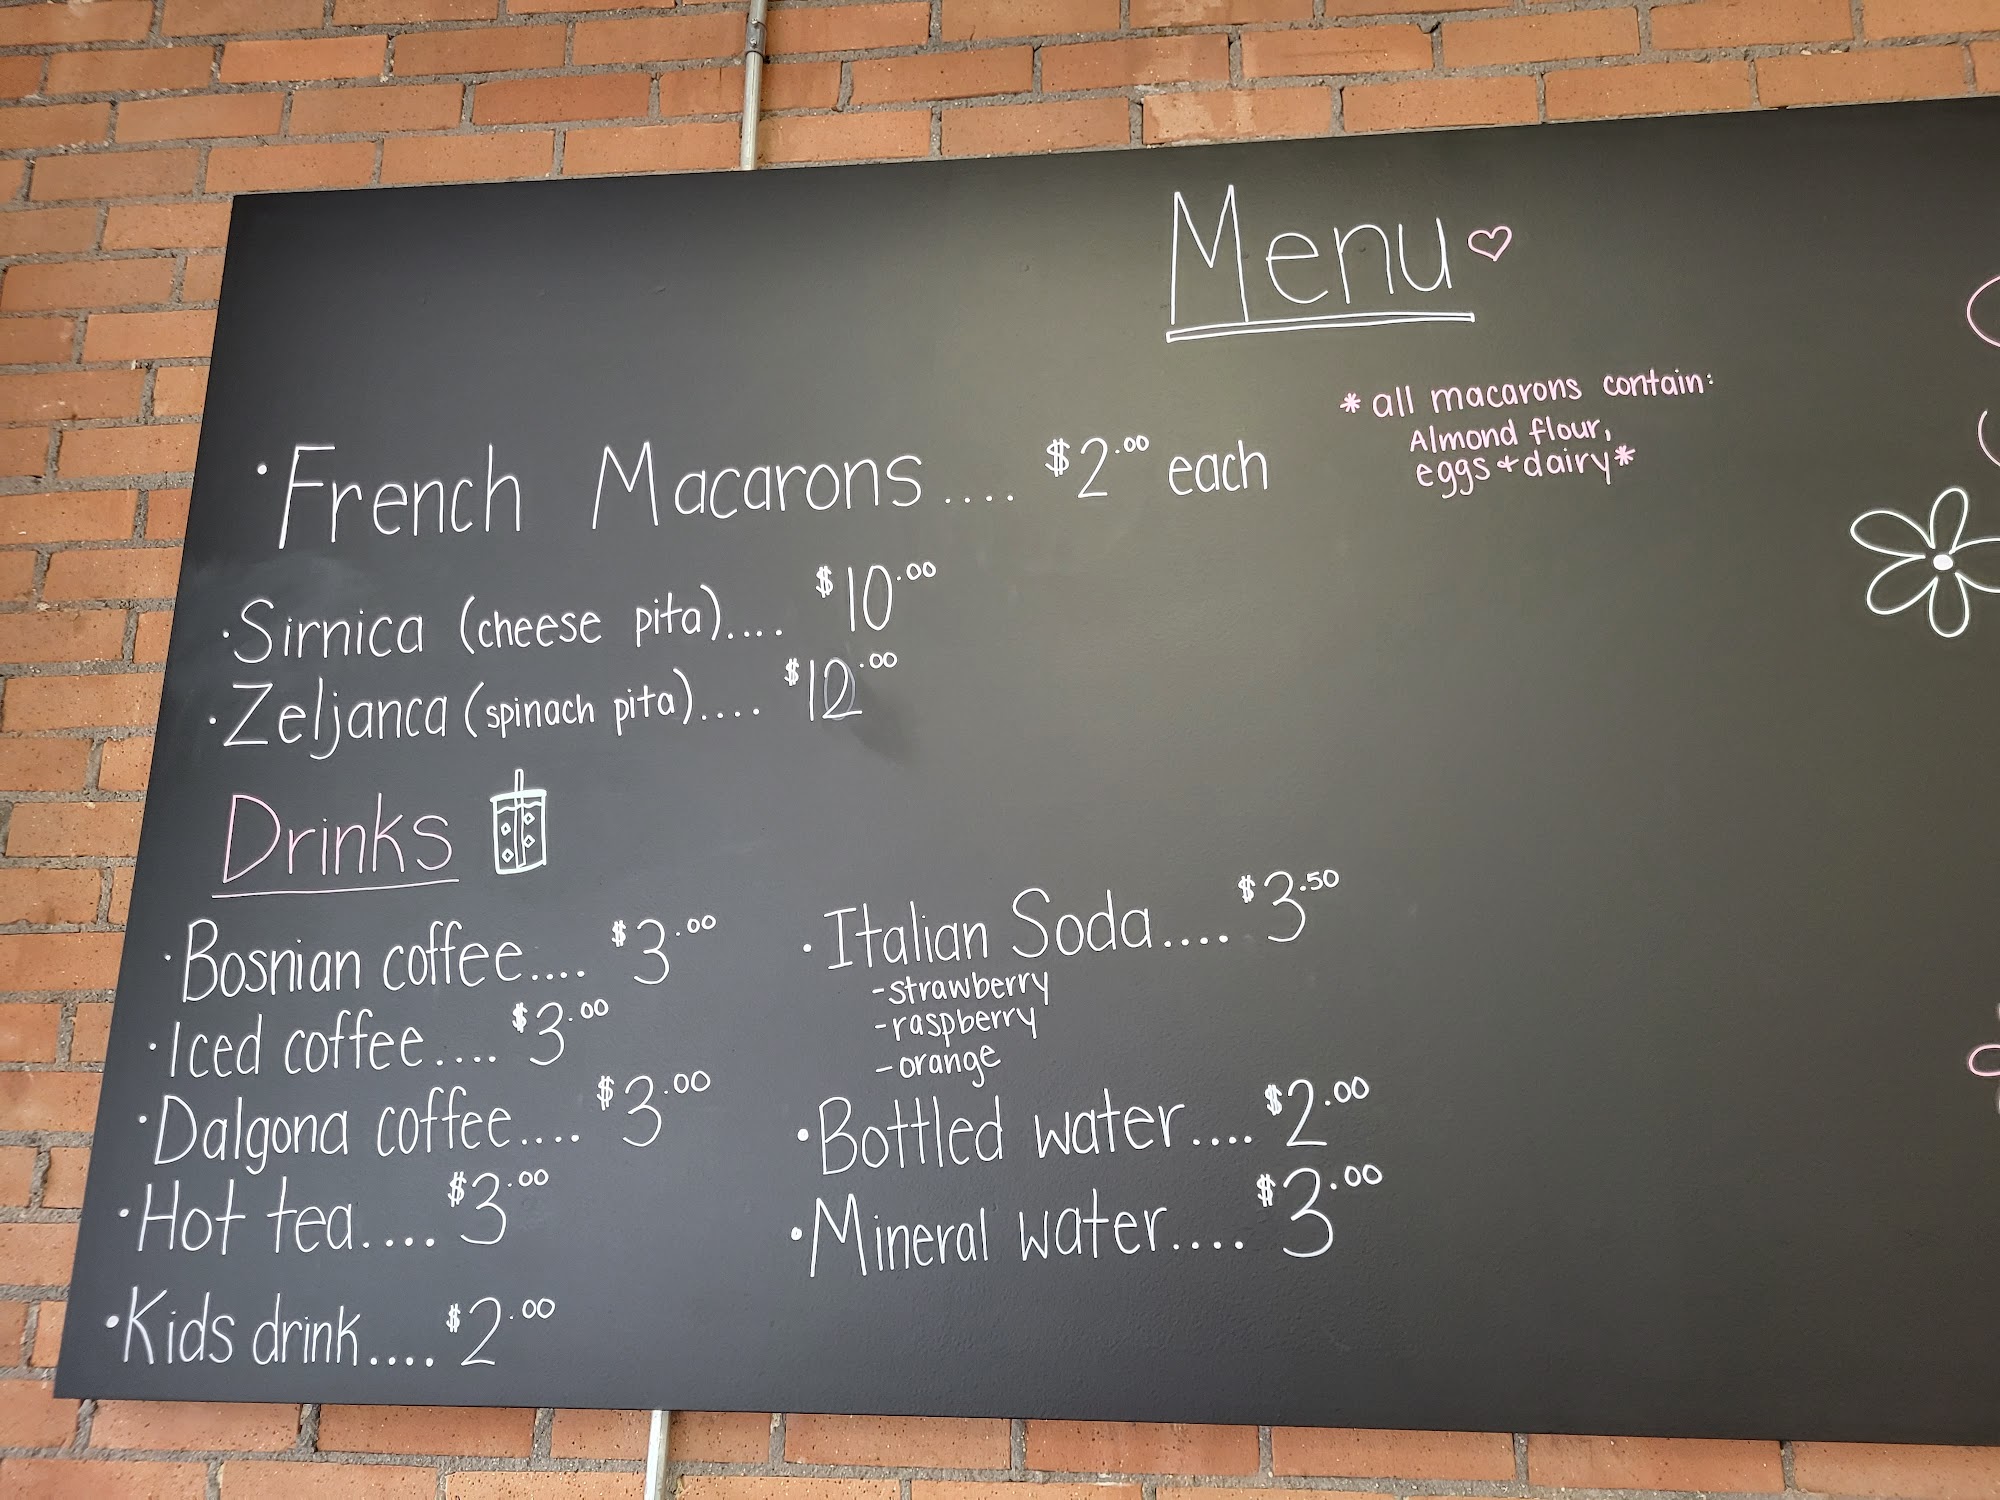 Menu
* all macarons contain:
Almond flour,
eggs + dairy*
• French Macarons.... $2.00 each
• Sirnica (cheese pita).... $10.00
• Zeljanca (spinach pita).... $12.00
Drinks
• Bosnian coffee.... $3.00
• Iced coffee.... $3.00
• Dalgona coffee.... $3.00
• Hot tea.... $3.00
• Kids drink.... $2.00
• Italian Soda.... $3.50
- strawberry
- raspberry
- orange
• Bottled water.... $2.00
• Mineral water.... $3.00